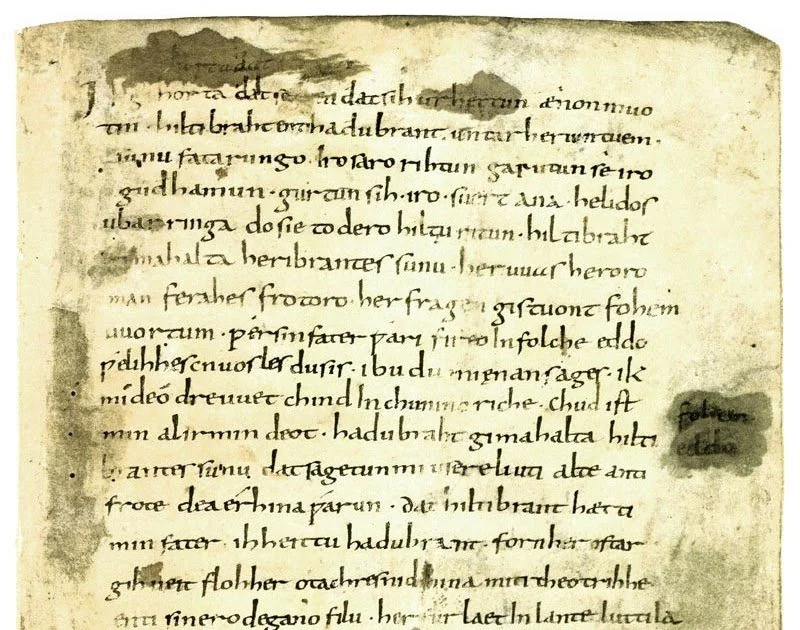 horta dat dat sih urhettun ænon muo
tin · hiltibraht enti hadubrant · untar heriun tuem ·
sunu fatarungo · iro saro rihtun garutun se iro
gudhamun · gurtun sih · iro · suert ana · helidos
ubar ringa do sie to dero hiltu ritun · hiltibraht
gimahalta heribrantes sunu · her uuas heroro
man ferahes frotoro · her fragen gistuont fohem
uuortum · ƿer sin fater ƿari fireo In folche eddo
ƿelihhes cnuosles du sis · ibu du mi enan sages · ik
mi deo dre uuet chind In chunincriche · chud ist
min al irmin deot · hadubraht gimahalta hilti
brantes sunu dat sagetun mi usere liuti alte anti
frote dea érhina ƿarun · dat hiltibrant hætti
min fater · ih heittu hadubrant · forn her ostar
gihueit floh her otachres nid hina miti theotrihhe
enti sinero degano filu · her furlaet In lante luttila
fohem
eddo